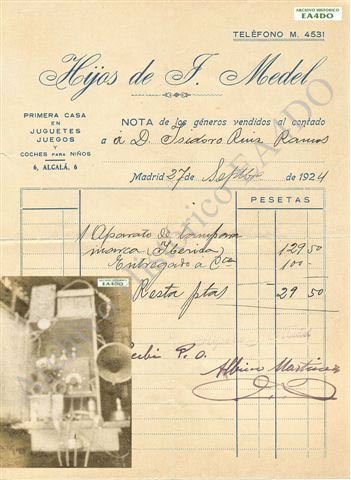 ARCHIVO HISTORICO
EA4DO
TELÉFONO M. 4531
Hijos de F. Medel
PRIMERA CASA
EN
JUGUETES
JUEGOS
Y
COCHES PARA NIÑOS
6, ALCALÁ, 6
NOTA de los géneros vendidos al contado
a D. Isidoro Ruiz Ramos
Madrid 27 de Septbre de 1924
PESETAS
1 Aparato de lampara
marca (Iberia) 129 50
Entregado a Cta 100 -
Resta ptas 29 50
Recibi P. O.
Albino Martinez
ARCHIVO HISTORICO
EA4DO
Archivo Historico EA4DO